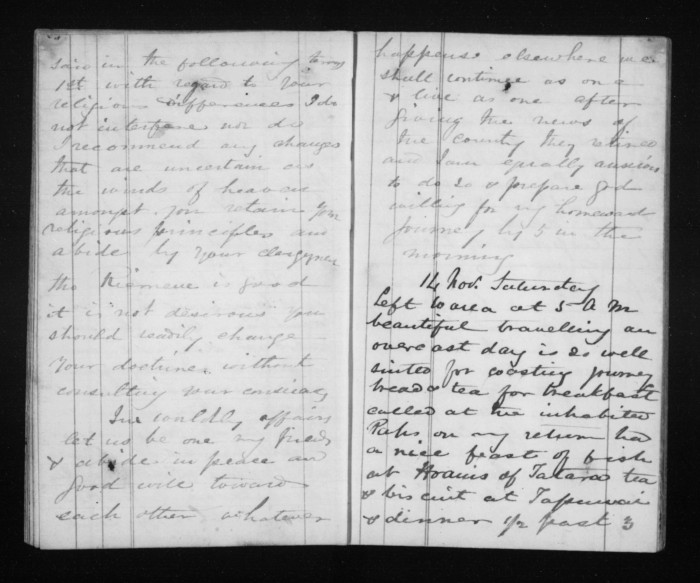 said in the following terms
1st with regard to your
religious differences I do
not interfere nor do
I recommend any changes
that are uncertain as
the winds of heaven
amongst you retain your
religious principles and
abide by your clergymen
the is good
it is not desirous you
should readily change
your doctrine without
consulting your
In worldly affairs
let us be one my friends
& abide in peace and
good will toward
each other whatever
happens elsewhere we
shall continue as one
& live as one after
giving the news of
the country they retired
and I am equally anxious
to do so & prepare God
willing for my homeward
journey by 5 in the
morning
14 Nov. Saturday
Left at 5 A M
beautiful travelling an
overcast day is so well
suited for coasting journey
bread & tea for breakfast
called at the inhabited
Pahs on my return had
a nice feast of fish
at of Tatara tea
& biscuit at
& dinner 1/2 past 3